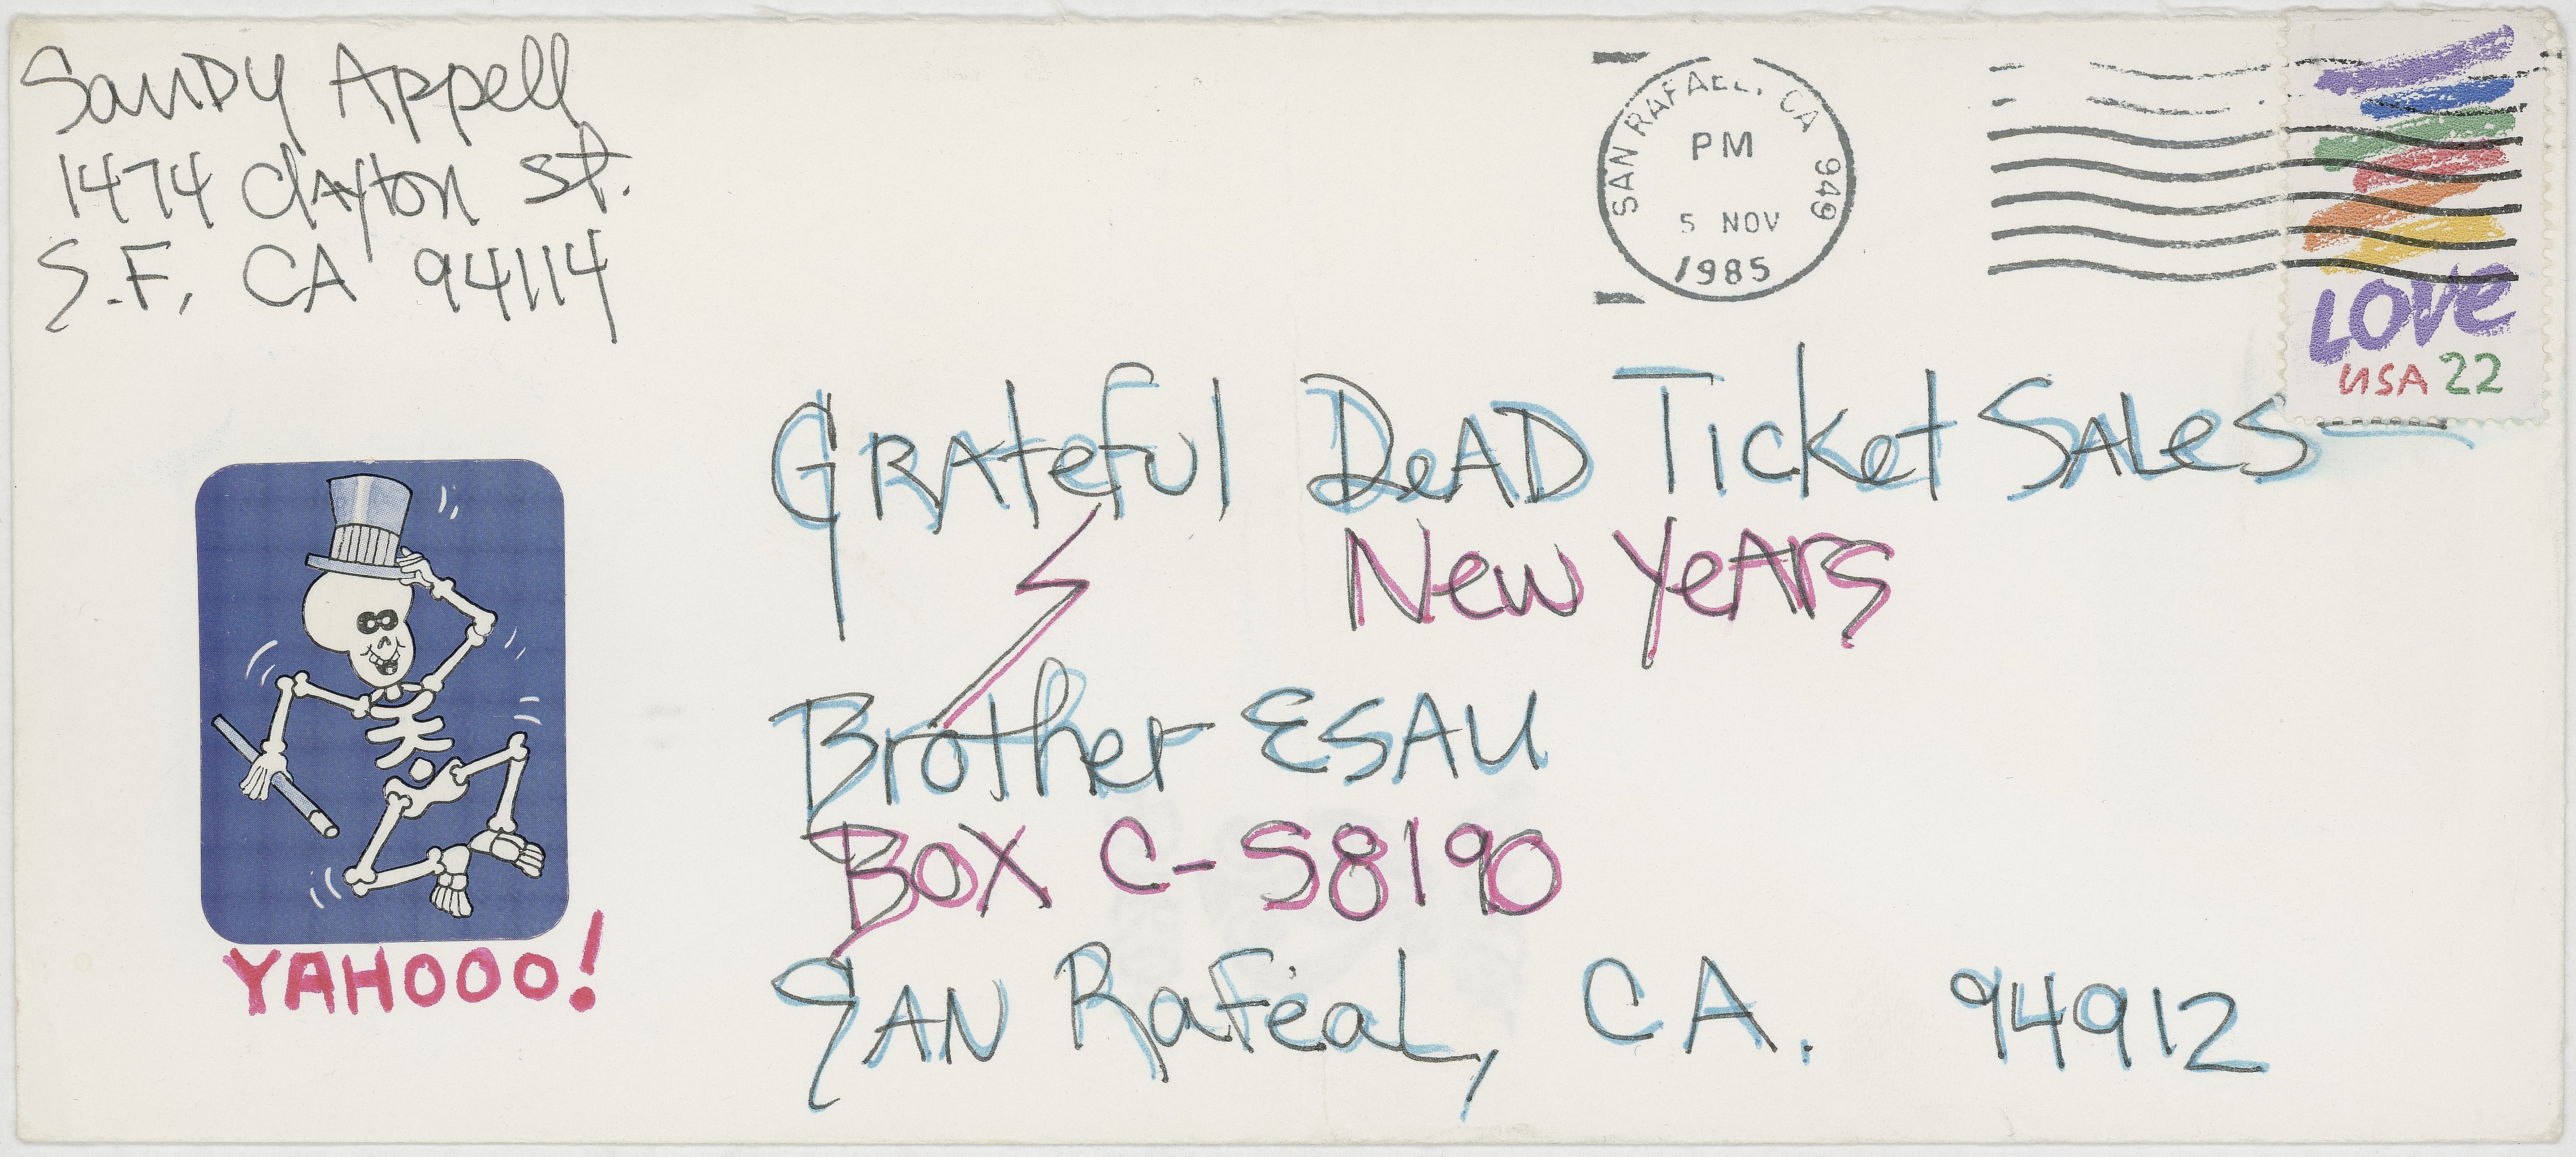 Sandy Appell
1474 Clayton St.
S.F, CA 94114
SAN RAFAEL, CA 949
PM
5 NOV
1985
LOVE
USA 22
GRAteful DeAD Ticket SALes
New YeArs
Brother ESAU
BOX C-S8190
SAN Rafeal, CA. 94912
YAHOOO!